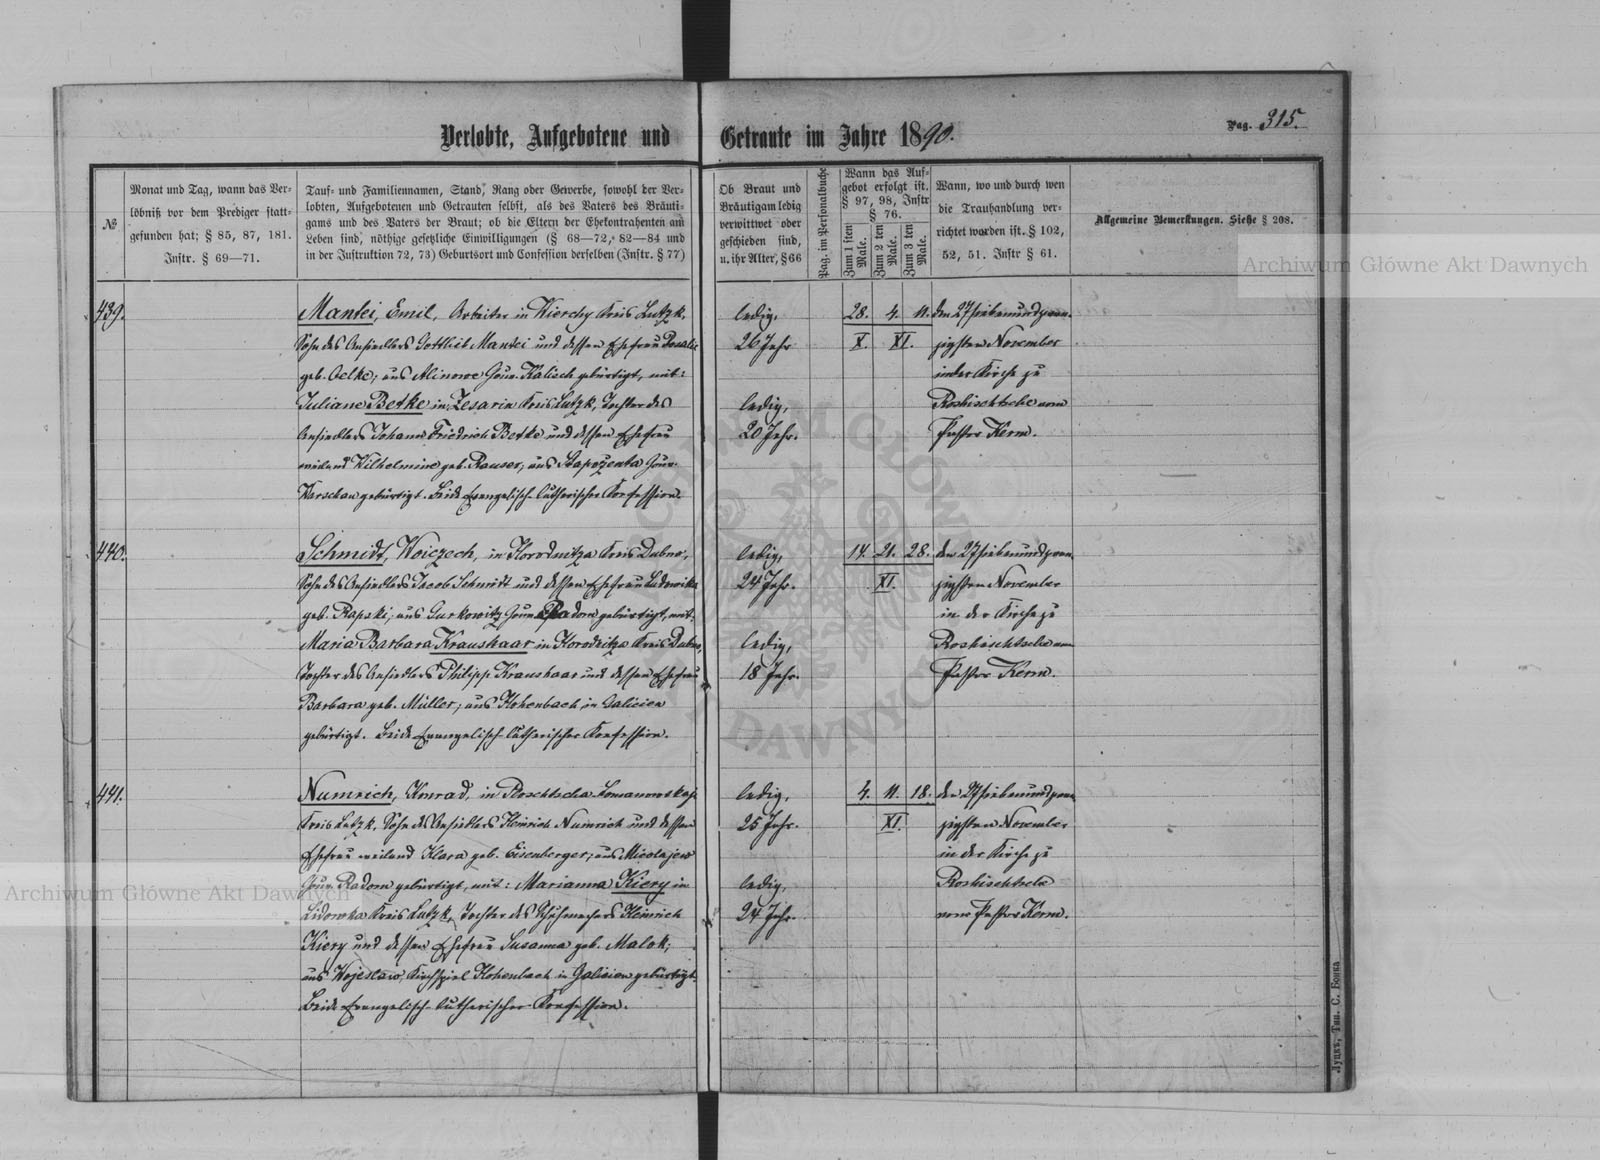 Verlobte, Aufgebotene und Getraute im Jahre 1890.
Pag. 315.
№
Monat und Tag, wann das Ver-
löbniß vor dem Prediger statt-
gefunden hat; § 85, 87, 181.
Instr. § 69—71.
Tauf- und Familiennamen, Stand, Rang oder Gewerbe, sowohl der Ver-
lobten, Aufgebotenen und Getrauten selbst, als des Vaters des Bräuti-
gams und des Vaters der Braut; ob die Eltern der Ehekontrahenten am
Leben sind, nöthige gesetzliche Einwilligungen (§ 68—72, 82—84 und
in der Instruktion 72, 73) Geburtsort und Confession derselben (Instr. § 77)
Ob Braut und
Bräutigam ledig
verwittwet oder
geschieden sind,
u. ihr Alter, § 66
Pag. im Personalbuche
Wann das Auf-
gebot erfolgt ist.
§ 97, 98, Instr
§ 76.
Zum 1 sten Male.
Zum 2 ten Male.
Zum 3 ten Male.
Wann, wo und durch wen
die Trauhandlung ver-
richtet worden ist. § 102,
52, 51. Instr § 61.
Allgemeine Bemerkungen. Siehe § 208.
439.
Mantei, Emil, Arbeiter in Wierchy Kreis Lutzk,
Sohn des Ansiedlers Gottlieb Mantei und dessen Ehefrau Rosalie
geb. Oelke; aus Alinowo Gouv. Kalisch gebürtigt, mit:
Juliane Betke in Zesarin Kreis Lutzk, Tochter des
Ansiedlers Johann Friedrich Betke und dessen Ehefrau
weiland Wilhelmine geb. Rauser, aus Gouv.
Warschau gebürtigt. Beide Evangelisch-Lutherischer Konfession.
ledig,
26 Jahr
ledig,
20 Jahr.
28. 4. 11.
X. XI.
den 27 siebenundzwan-
zigsten November
in der Kirche zu
Roshischtsche vom
Pastor Kerm.
440.
Schmidt, Woiczech, in Horodnitza Kreis Dubno,
Sohn des Ansiedlers Jacob Schmidt und dessen Ehefrau Ludowika
geb. Rapski; aus Gurkowitz Gouv. Radom gebürtigt, mit:
Maria Barbara Kraushaar in Horodnitza Kreis Dubno,
Tochter des Ansiedlers Philipp Kraushaar und dessen Ehefrau
Barbara geb. Müller; aus Hohenbach in Galicien
gebürtigt. Beide Evangelisch-Lutherischer Konfession.
ledig,
24 Jahr.
ledig,
18 Jahr.
14. 21. 28.
XI.
den 27 siebenundzwan-
zigsten November
in der Kirche zu
Roshischtsche vom
Pastor Kerm.
441.
Numrich, Konrad, in
Kreis Lutzk, Sohn des Ansiedlers Heinrich Numrich und dessen
Ehefrau weiland Klara geb. Eisenberger; aus Micolajew
Gouv. Radom gebürtigt, mit: Marianna Kiery in
Lidowka Kreis Lutzk, Tochter des Schuhmachers Heinrich
Kiery und dessen Ehefrau Susanna geb. Malok;
aus Wojeslaw, Kirchspiel Hohenbach in Galicien gebürtigt.
Beide Evangelisch-Lutherischer Konfession.
ledig,
25 Jahr.
ledig,
24 Jahr.
4. 11. 18.
XI.
den 27 siebenundzwan-
zigsten November
in der Kirche zu
Roshischtsche
vom Pastor Kerm.
Луцкъ, Тип. С. Бонка
Archiwum Główne Akt Dawnych
Archiwum Główne Akt Dawnych